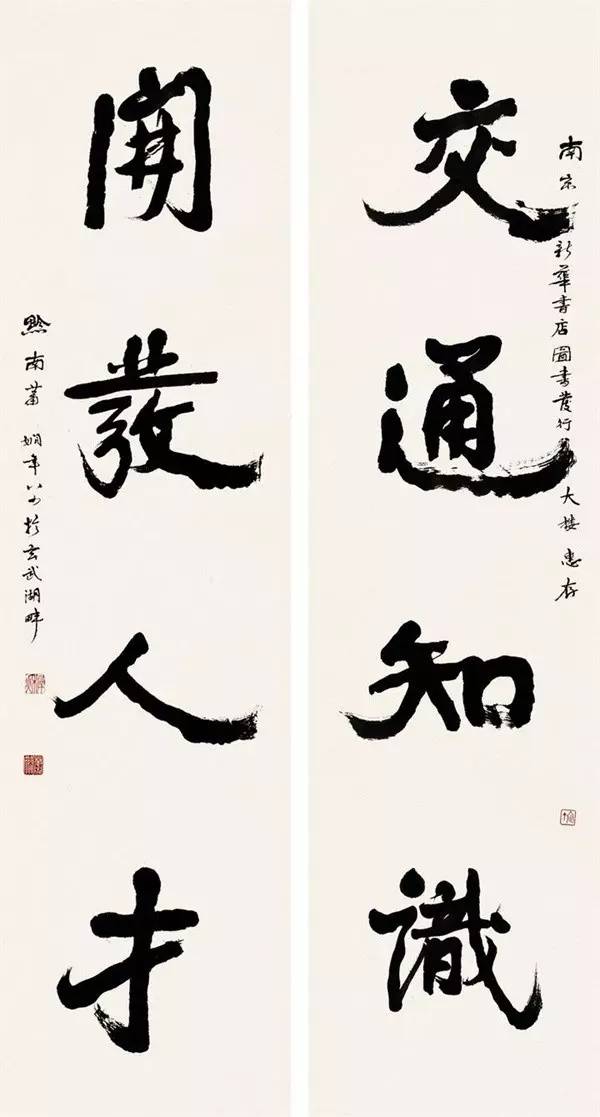 南京 新華書店圖書發行 大樓 惠存
交通知識
開發人才
黔南蕭嫻年八 於玄武湖畔